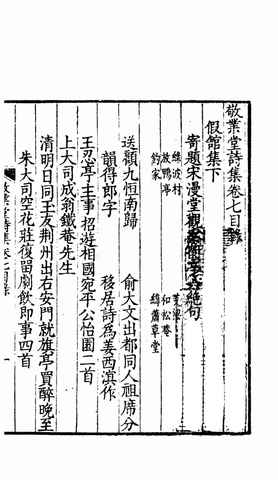 敬業堂詩集卷七目錄
假館集下
寄題宋漫堂觀絕句
綠波村
放鴨亭
釣家
和松菴
緯蕭草堂
送顧九恒南歸　俞大文出都同人祖席分
韻得郎字　移居詩為姜西溟作
王忍亭主事招遊相國宛平公怡園二首
上大司成翁鐵菴先生
清明日同王友荆州出右安門就旗亭買醉晚至
朱大司空花莊復留劇飲即事四首
敬業堂詩集　卷七目錄　一